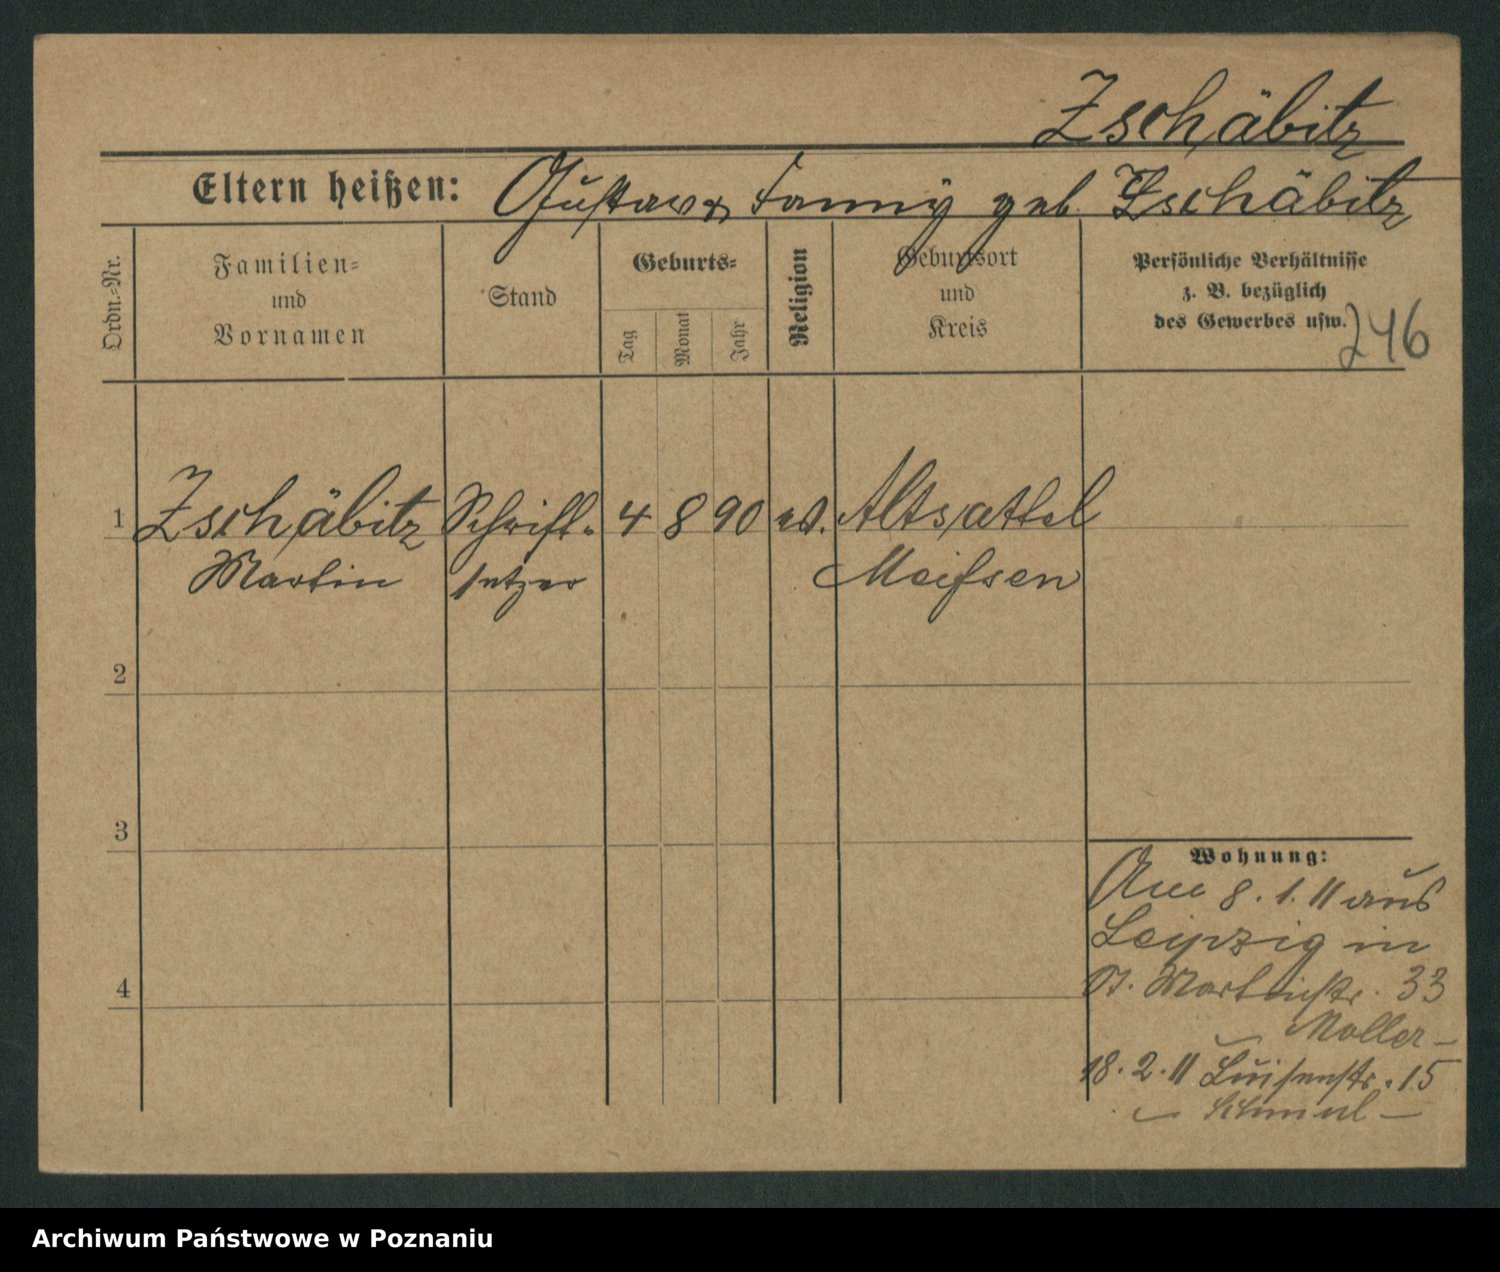 Zschäbitz
Eltern heißen: Gustav & Fanny geb. Zschäbitz
Ordn.-Nr.
Familien-
und
Vornamen
Stand
Geburts-
Tag
Monat
Jahr
Religion
Geburtsort
und
Kreis
Persönliche Verhältnisse
z. B. bezüglich
des Gewerbes usw.
246
1 Zschäbitz Schrift- 4 8 90 ev. Altsattel
Martin setzer Meifsen
2
3
4
Wohnung:
Am 8. 1. 11 aus
Leipzig in
St. Martinstr. 33
Moller-
18. 2. 11 Luisenstr. 15
Archiwum Państwowe w Poznaniu